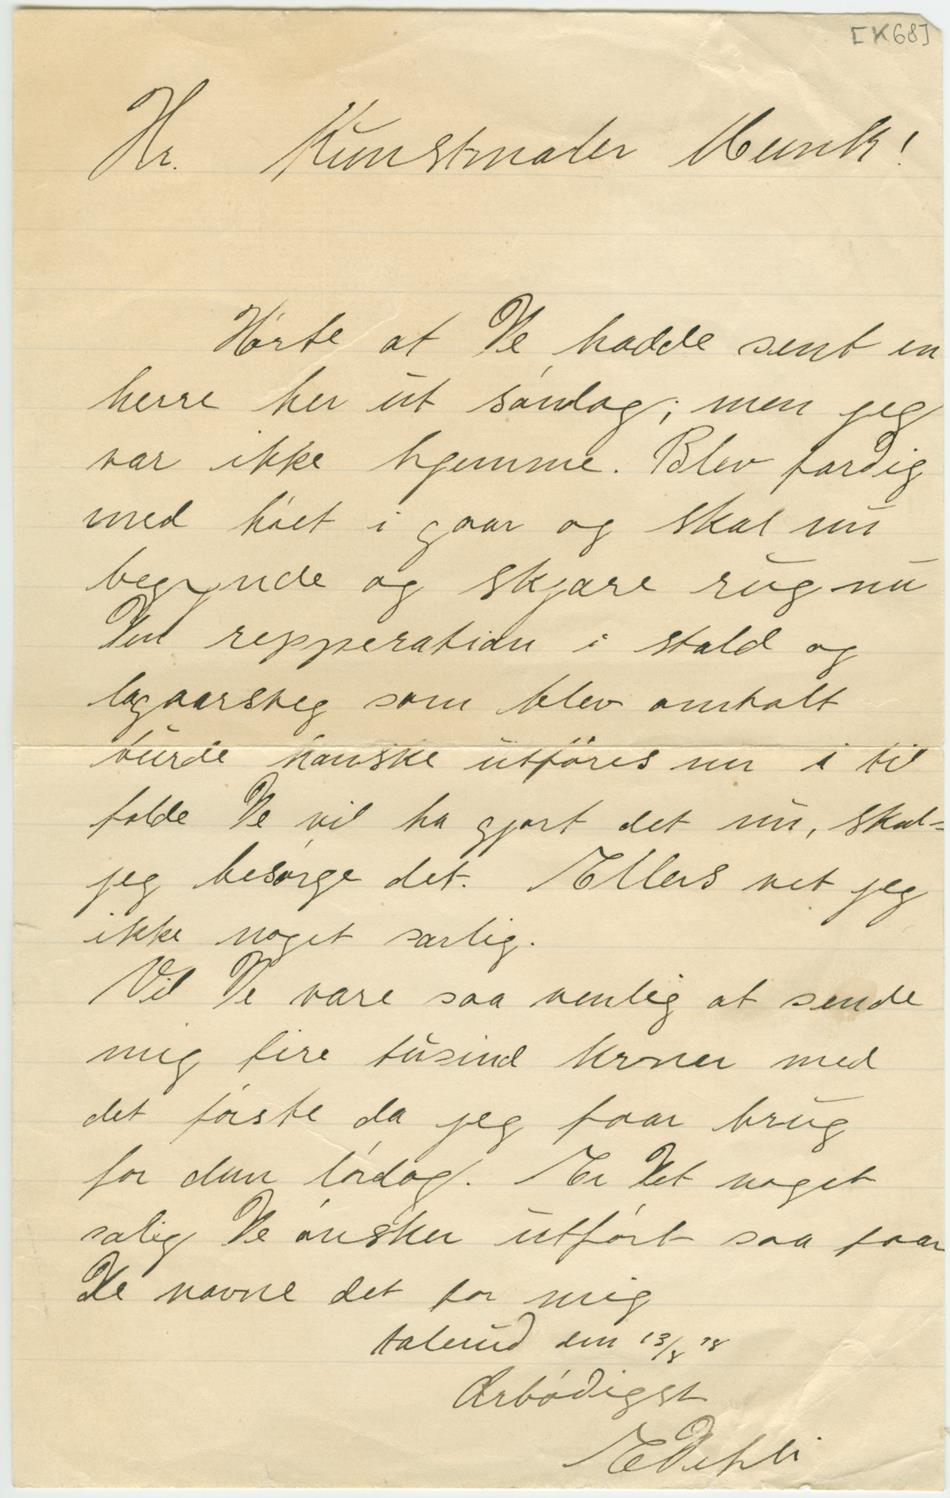 [K68]
Hr. Kunstmaler Munk!
Hørte at De hadde sent en
herre her ut søndag; men jeg
var ikke hjemme. Blev færdig
med høet i gaar og skal nu
begynde og skjære rug nu
Den repperation i stald og
som blev omtalt
burde kanske utføres nu i til
fælde De vil ha gjort det nu, skal
jeg besørge det. Ellers vet jeg
ikke noget særlig.
Vil De være saa venlig at sende
mig fire tusind kroner med
det første da jeg faar brug
for dem lørdag. Er det noget
sælig De ønsker utført saa faar
De nævne det for mig
den 13/8 18
Ærbødigst
E Dehli